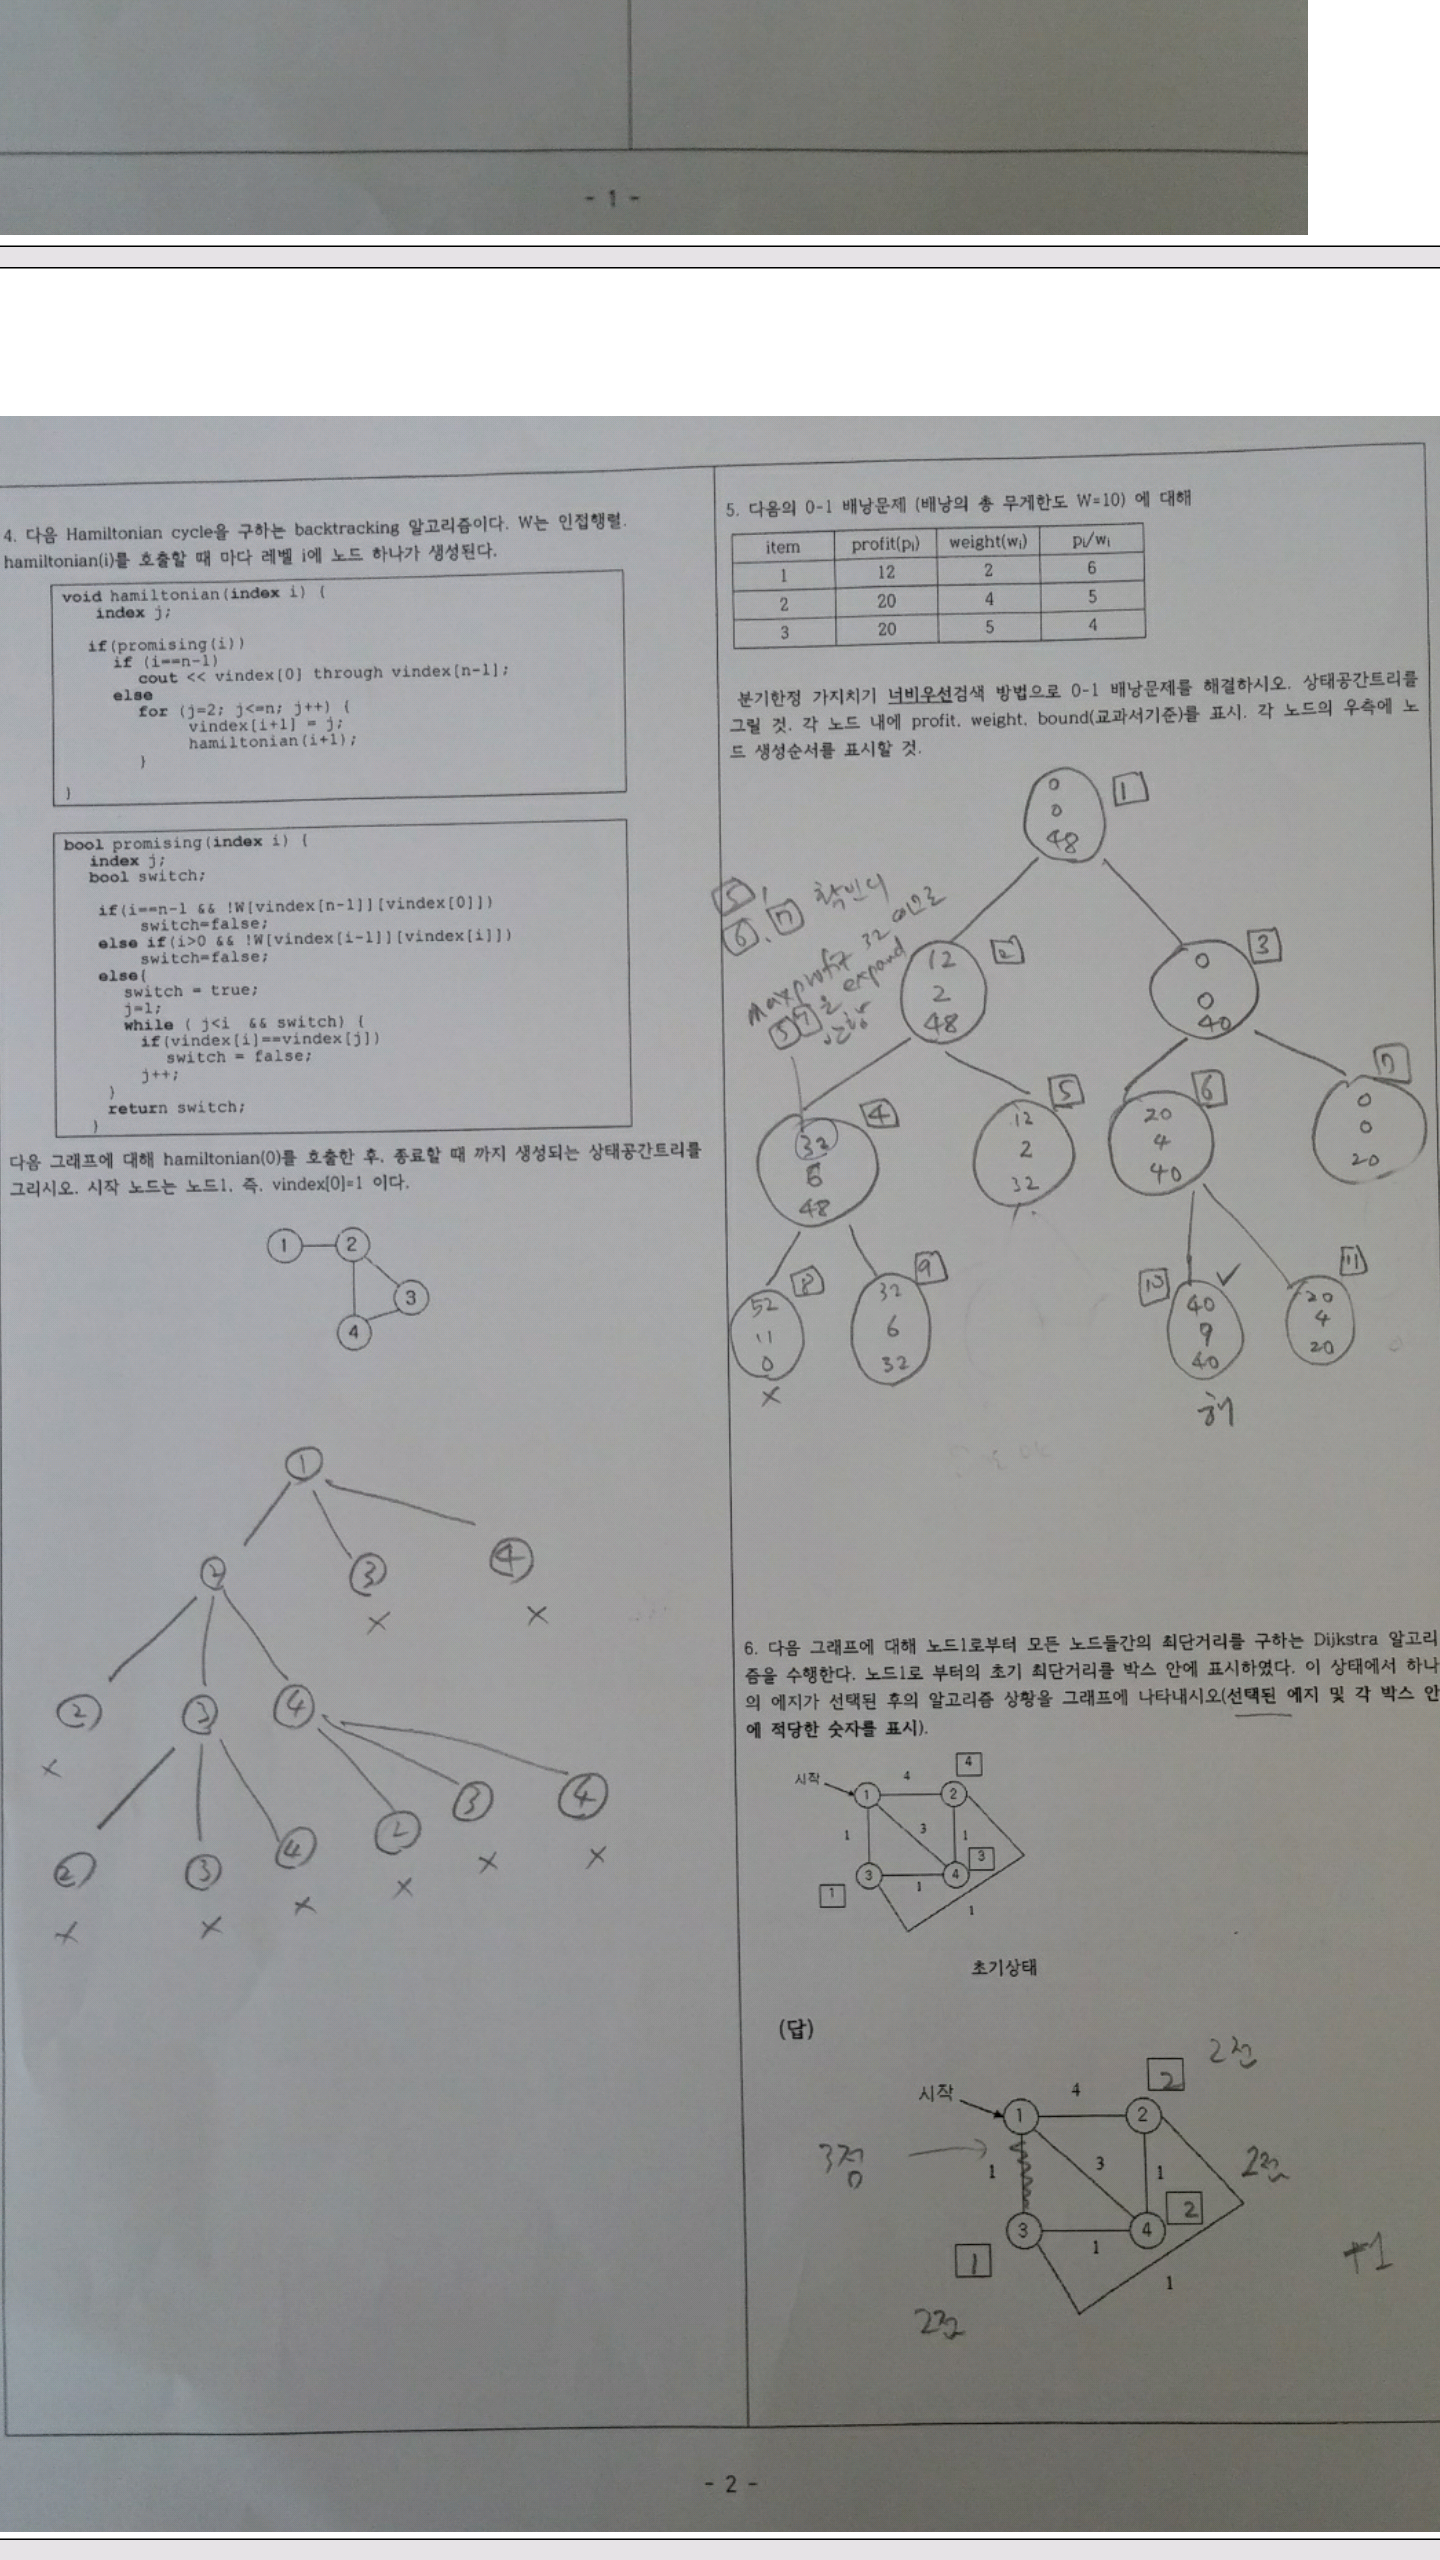 - 1 -
4. 다음 Hamiltonian cycle을 구하는 backtracking 알고리즘이다. W는 인접행렬.
hamiltonian(i)를 호출할 때 마다 레벨 i에 노드 하나가 생성된다.
void hamiltonian(index i) {
index j;
if(promising(i))
if (i==n-1)
cout << vindex[0] through vindex[n-1];
else
for (j=2; j<=n; j++) {
vindex[i+1] = j;
hamiltonian(i+1);
}
}
bool promising(index i) {
index j;
bool switch;
if(i==n-1 && !W[vindex[n-1]][vindex[0]])
switch=false;
else if(i>0 && !W[vindex[i-1]][vindex[i]])
switch=false;
else{
switch = true;
j=1;
while ( j<i && switch) {
if(vindex[i]==vindex[j])
switch = false;
j++;
}
return switch;
}
다음 그래프에 대해 hamiltonian(0)를 호출한 후, 종료할 때 까지 생성되는 상태공간트리를
그리시오. 시작 노드는 노드1, 즉, vindex[0]=1 이다.
1 2
3
4
1
2 3 4
× ×
2 3 4
×
2 3 4 2 3 4
× × × × × ×
5. 다음의 0-1 배낭문제 (배낭의 총 무게한도 W=10) 에 대해
item profit(pi) weight(wi) pi/wi
1 12 2 6
2 20 4 5
3 20 5 4
분기한정 가지치기 너비우선검색 방법으로 0-1 배낭문제를 해결하시오. 상태공간트리를
그릴 것. 각 노드 내에 profit, weight, bound(교과서기준)를 표시. 각 노드의 우측에 노
드 생성순서를 표시할 것.
0
0
48
1
5,
6, 7 확인시
maxprofit 32 이므로
5 7을 expand
안함
12
2
48
2
0
0
40
3
32
6
48
4
12
2
32
5
20
4
40
6
0
0
20
7
52
11
0
8
×
32
6
32
9
40
9
40
10
해
20
4
20
11
6. 다음 그래프에 대해 노드1로부터 모든 노드들간의 최단거리를 구하는 Dijkstra 알고리
즘을 수행한다. 노드1로 부터의 초기 최단거리를 박스 안에 표시하였다. 이 상태에서 하나
의 에지가 선택된 후의 알고리즘 상황을 그래프에 나타내시오(선택된 에지 및 각 박스 안
에 적당한 숫자를 표시).
4
시작 1 4 2
1 3 1
3 1 4 3
1
1
초기상태
(답)
2점
2
시작 1 4 2
3점 1 3 1 2점
3 1 4 2
1
1
+1
2점
- 2 -